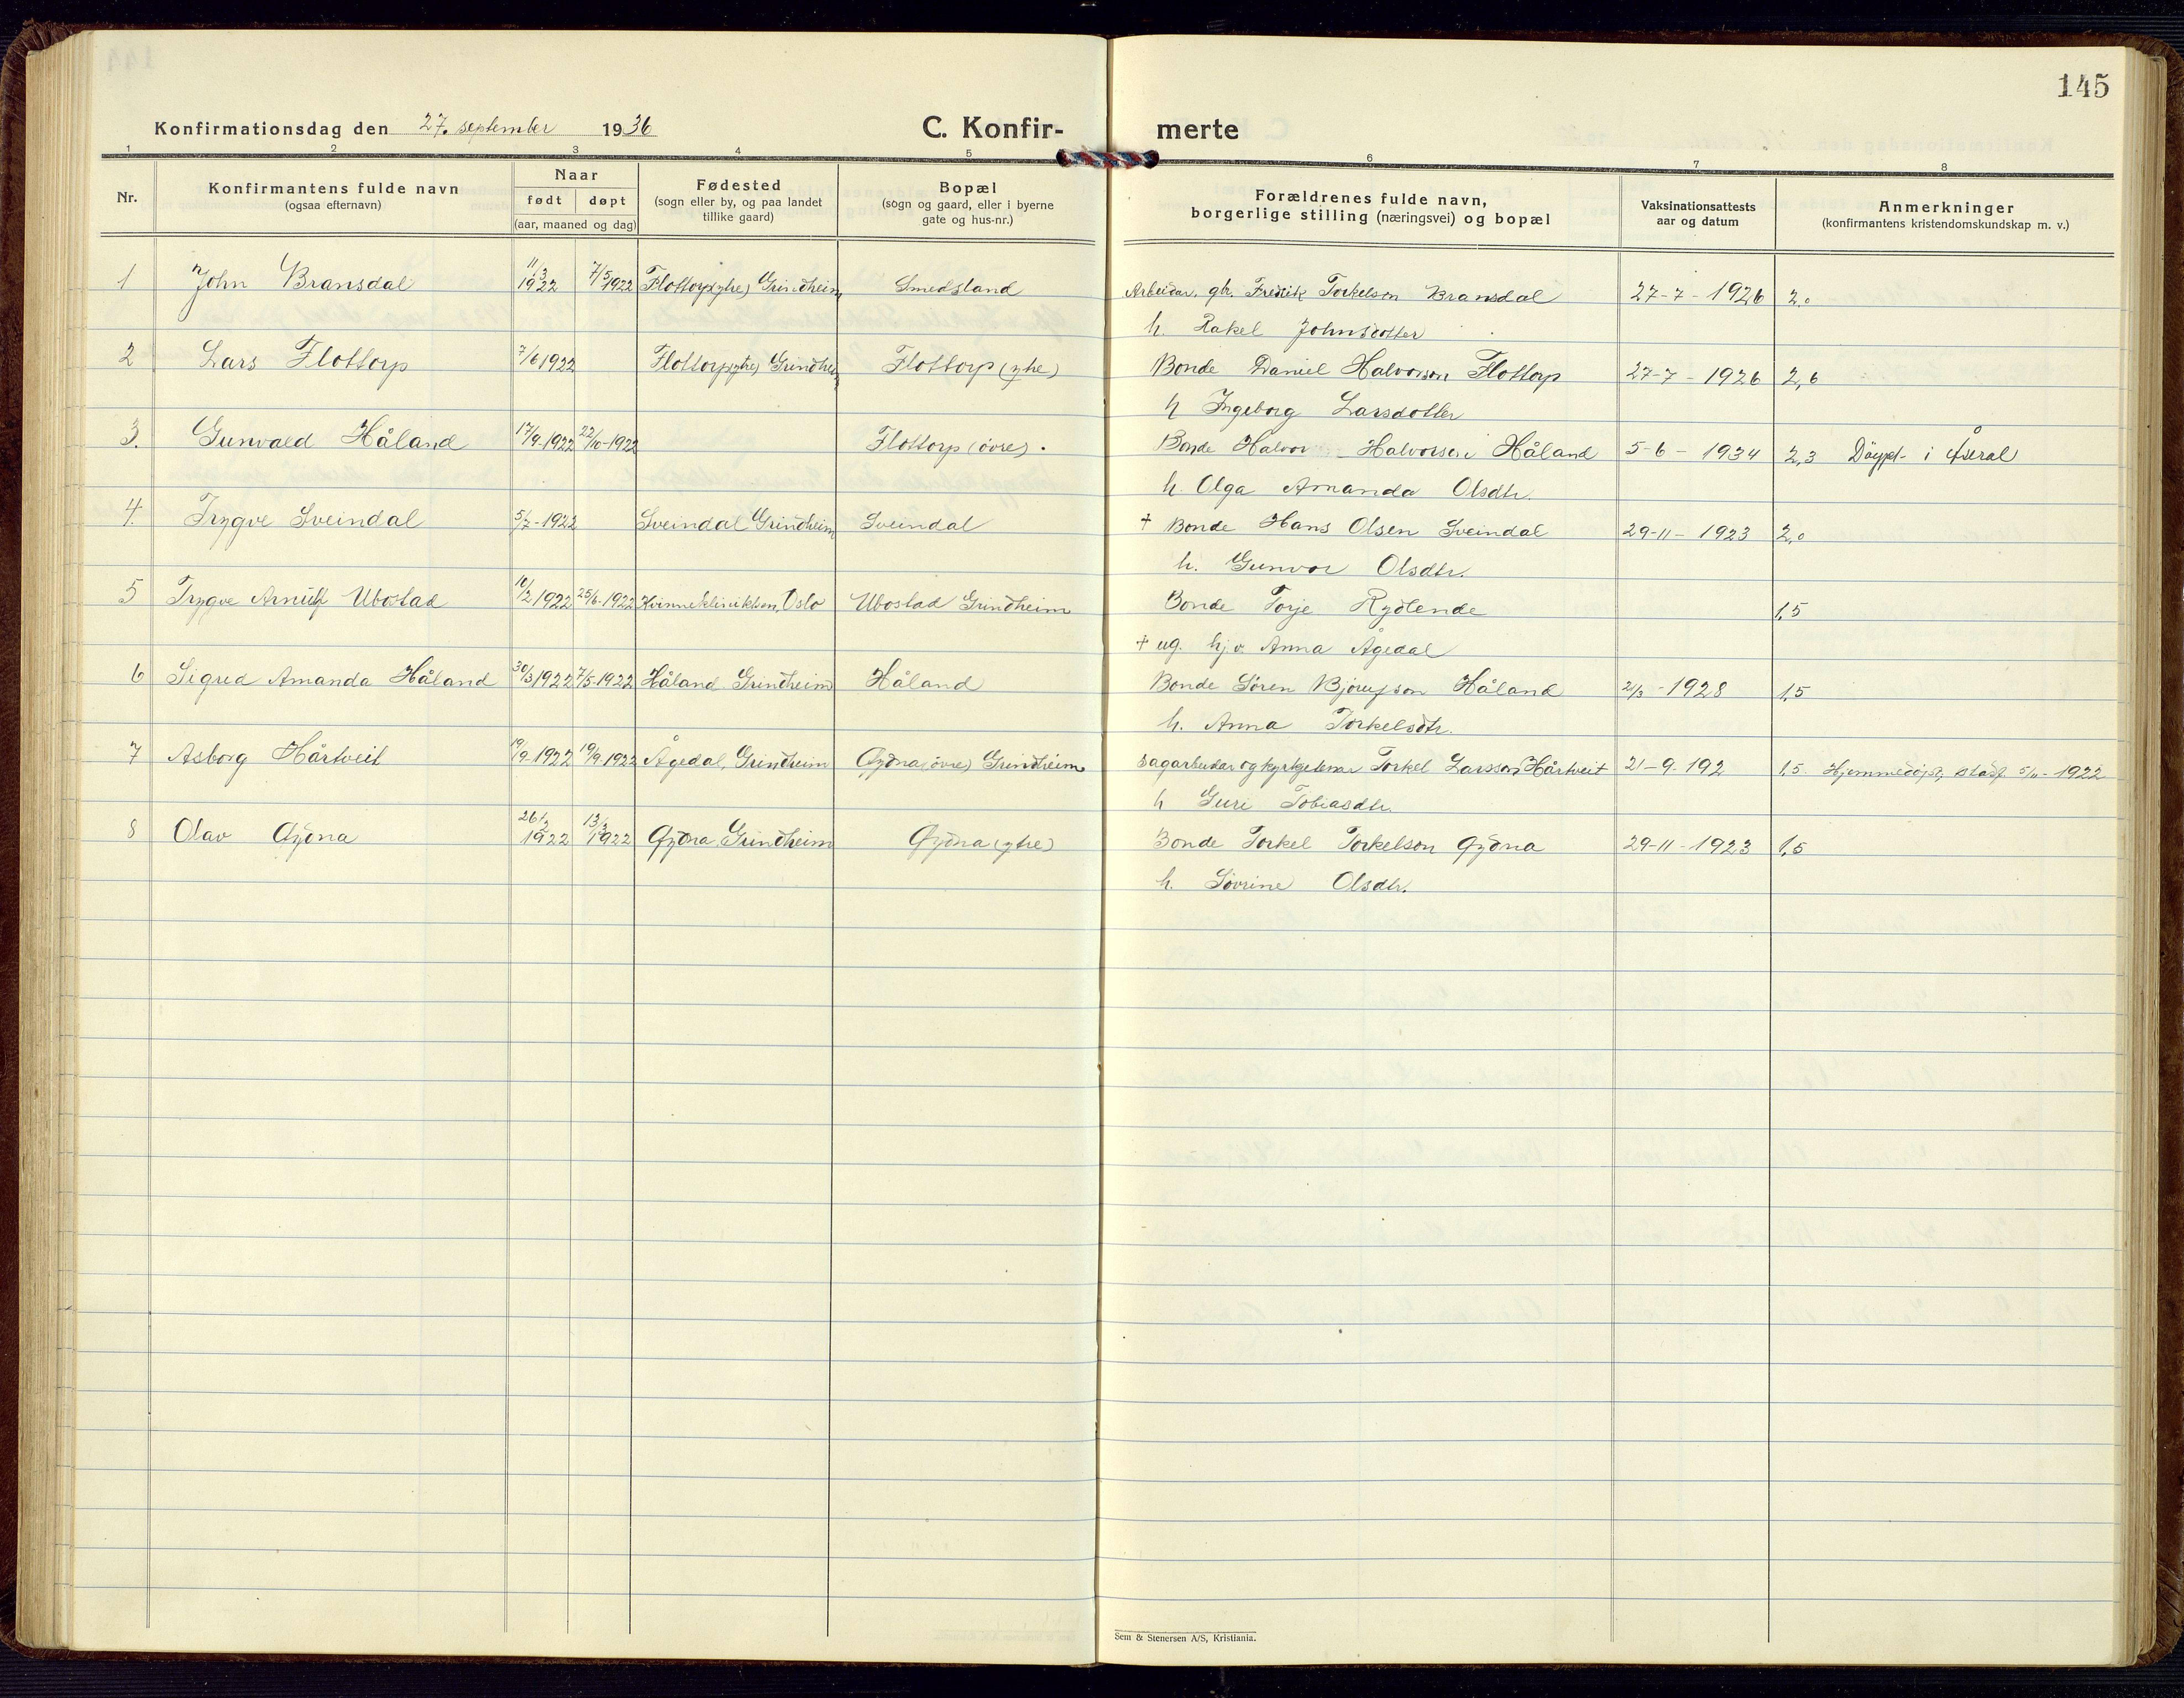 145
Konfirmationsdag den 27. september 1936 C. Konfir- merte
1 2 3 4 5 6 7 8
Nr. Konfirmantens fulde navn (ogsaa efternavn) Naar født døpt (aar, maaned og dag) Fødested (sogn eller by, og paa landet tillike gaard) Bopæl (sogn og gaard, eller i byerne gate og hus-nr.) Forældrenes fulde navn, borgerlige stilling (næringsvei) og bopæl Vaksinationsattests aar og datum Anmerkninger (konfirmantens kristendomskundskap m. v.)
1 John Bransdal 11/3 1922 7/5 1922 Flottorp (ytre) Grindheim Smedsland Arbeidar, gbr. Fredrik Torkelson Bransdal 27-7-1926 2,0
h. Rakel Johnsdotter
2 Lars Flottorp 7/6 1922 Flottorp (ytre) Grindheim Flottorp (ytre) Bonde Daniel Halvorson Flottorp 27-7-1926 2,6
h Ingeborg Larsdotter
3. Gunvald Håland 17/9-1922 22/10-1922 Flottorp (övre). Bonde Halvor Halvorsen Håland 5-6-1934 2,3 Döypt i Åseral
h. Olga Amanda Olsdtr.
4. Trygve Sveindal 5/7-1922 Sveindal Grindheim Sveindal + Bonde Hans Olsen Sveindal 29-11-1923 2,0
h. Gunvor Olsdtr.
5 Trygve Arnulf Ubostad 10/2 1922 25/6-1922 Kvinneklinikken, Oslo Ubostad Grindheim Bonde Torje Rydlende 1,5
+ ug. hj.v. Anna Ågedal
6 Sigred Amanda Håland 30/3 1922 7/5-1922 Håland Grindheim Håland Bonde Sören Björulfson Håland 2/3-1928 1,5
h. Anna Torkelsdtr.
7 Asborg Hårtveit 19/9-1922 19/9-1922 Ågedal, Grindheim Gyðna (övre) Grindheim Sagarbeidar og kyrkjetenar Torkel Larsson Hårtveit 21-9-192 1,5. Hjemmedöpt, stadf. 5/11-1922
h Guri Tobiasdtr.
8 Olav Gyðna 26/2 1922 13/3 1922 Gyðna Grindheim Gyðna (ytre) Bonde Torkel Torkelson Gyðna 29-11-1923 1,5
h. Sövrine Olsdtr.
Sem & Stenersen A/S, Kristiania.